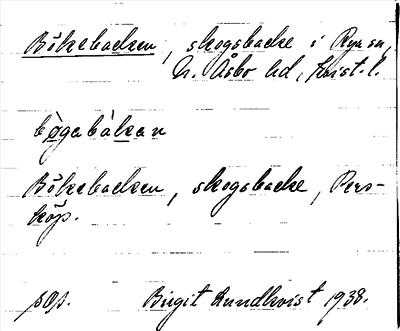 Bökebacken, skogsbacke i Rya sn,
N. Åsbo hd, Krist. l.
bø̀gabàkan
Bökebacken, skogsbacke, Pers-
köp.
sop. Birgit Lundkvist 1938.